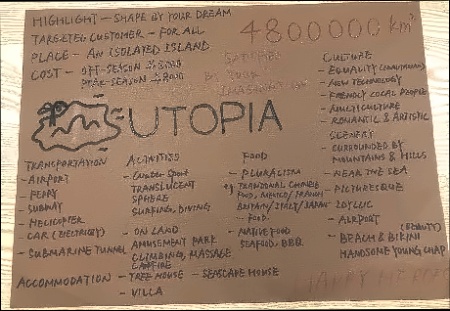 HIGHLIGHT - SHAPE BY YOUR DREAM
TARGETED CUSTOMER - FOR ALL
PLACE - AN ISOLATED ISLAND
COST - OFF-SEASON
SEASON
4800000 km²
BY YOUR
UTOPIA
CULTURE
- EQUALITY
- NEW TECHNOLOGY
- FRIENDLY LOCAL PEOPLE
- MULTICULTURE
- ROMANTIC & ARTISTIC
SCENERY
- SURROUNDED BY
MOUNTAINS & HILLS
- NEAR THE SEA
- PICTURESQUE
- IDYLLIC
- AIRPORT
- BEACH & BIKINI
HANDSOME YOUNG CHAP
TRANSPORTATION
- AIRPORT
- FERRY
- SUBWAY
- HELICOPTER
- CAR (ELECTRICITY)
- SUBMARINE TUNNEL
ACTIVITIES
TRANSLUCENT
SPHERE
SURFING, DIVING
- ON LAND
AMUSEMENT PARK
CLIMBING, MASSAGE
CAMPFIRE
FOOD
- PLURALISM
TRADITIONAL CHINESE
FOOD
- NATIVE FOOD
SEAFOOD, BBQ
ACCOMMODATION - TREE HOUSE - SEASCAPE HOUSE
- VILLA